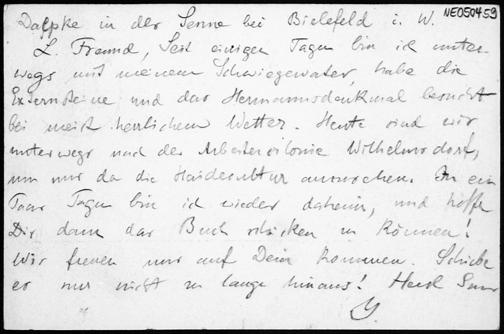 Dalpke in der Senne bei Bielefeld i. W.
NE050459
L. Freund, Seit einigen Tagen bin ich unter-
wegs mit meinem Schwiegervater, habe die
Externsteine und das Hermannsdenkmal besucht
bei meist herrlichem Wetter. Heute sind wir
unterwegs nach der Arbeiterkolonie Wilhelmsdorf,
um mir da die Haidecultur anzusehen. In ein
Paar Tagen bin ich wieder daheim, und hoffe
Dir dann das Buch schicken zu können!
Wir freuen uns auf Dein Kommen. Schiebe
es nur nicht zu lange hinaus! Herzl